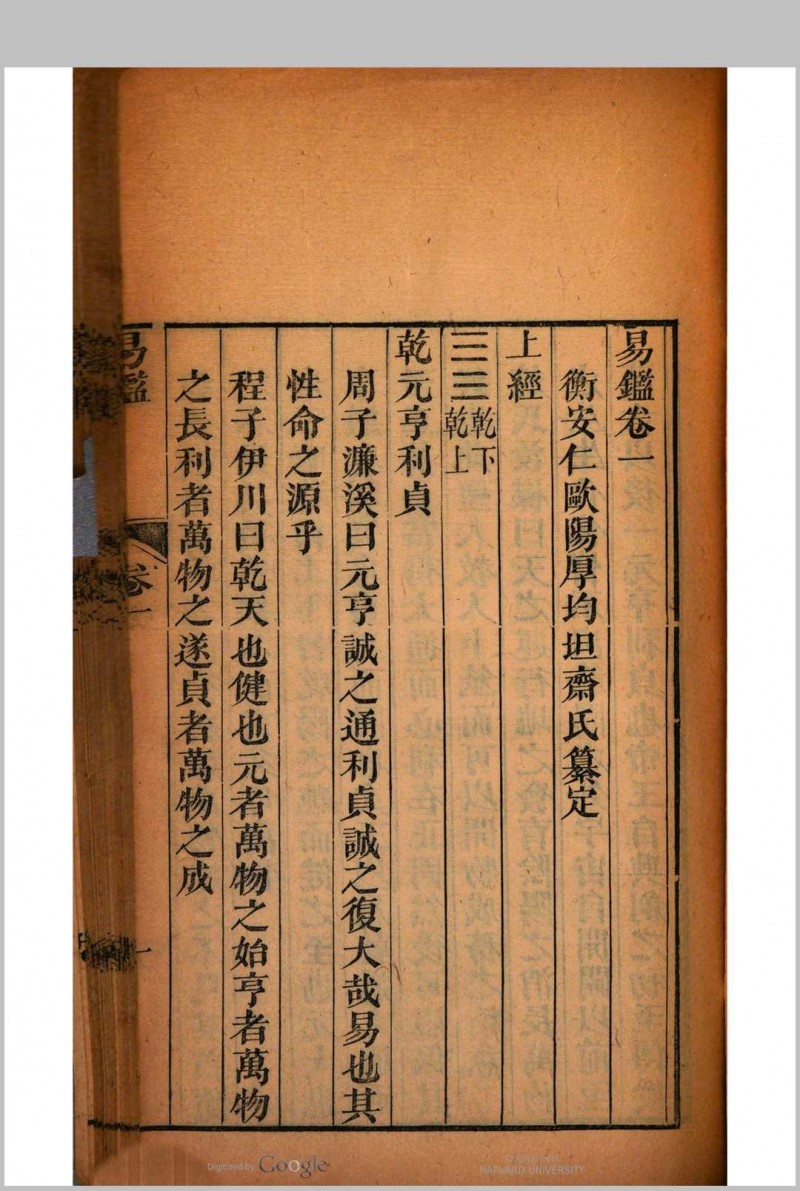 易鑑卷一
衡安仁歐陽厚均坦齋氏纂定
上經
☰☰乾下乾上
乾元亨利貞
周子濂溪曰元亨誠之通利貞誠之復大哉易也其
性命之源乎
程子伊川曰乾天也健也元者萬物之始亨者萬物
之長利者萬物之遂貞者萬物之成
易鑑
卷一
一
Digitized by Google
Original from
HARVARD UNIVERSITY